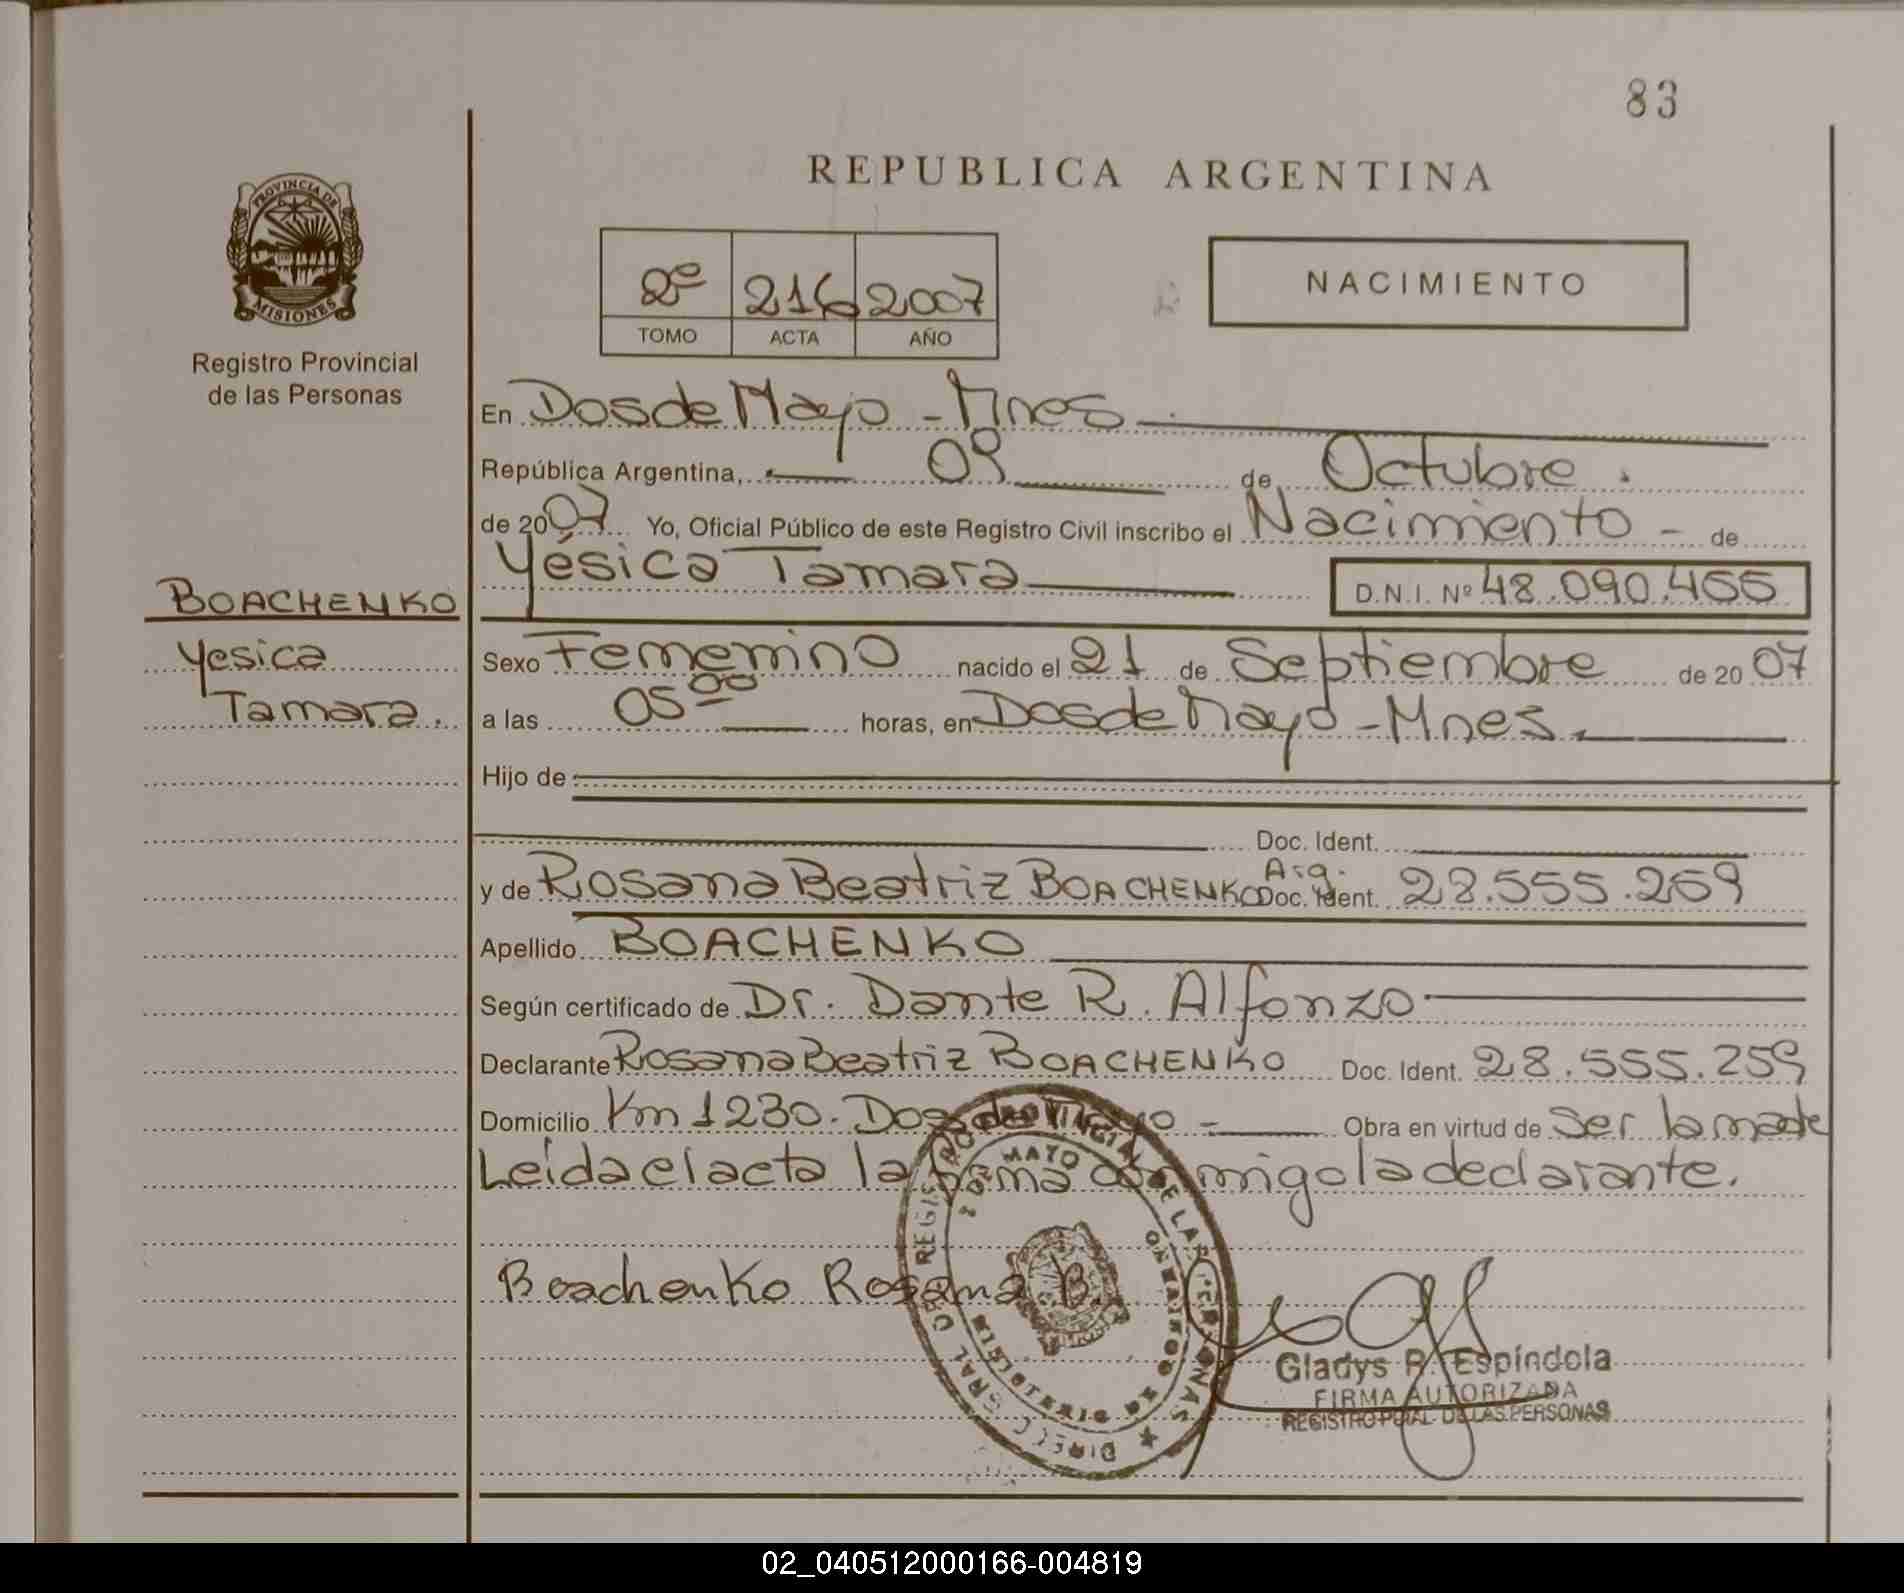 83
REPUBLICA ARGENTINA
PROVINCIA DE
MISIONES
Registro Provincial
de las Personas
2º 216 2007
TOMO ACTA AÑO
NACIMIENTO
En Dos de Mayo - Mnes
República Argentina, 09 de Octubre.
de 2007 Yo, Oficial Público de este Registro Civil inscribo el Nacimiento - de
Yésica Tamara D.N.I. Nº 48.090.455
BOACHENKO
Yesica
Tamara.
Sexo Femenino nacido el 21 de Septiembre de 2007
a las 05⁰⁰ horas, en Dos de Mayo - Mnes.
Hijo de
Doc. Ident.
y de Rosana Beatriz BOACHENKO Arg. Doc. Ident. 28.555.259
Apellido BOACHENKO
Según certificado de Dr. Dante R. Alfonzo
Declarante Rosana Beatriz BOACHENKO Doc. Ident. 28.555.259
Domicilio Km 1230. Dos de Mayo - Obra en virtud de Ser la madre
Leída el acta la firma conmigo la declarante.
Boachenko Rosana B.
Gladys R. Espíndola
FIRMA AUTORIZADA
REGISTRO PCIAL. DE LAS PERSONAS
02_040512000166-004819